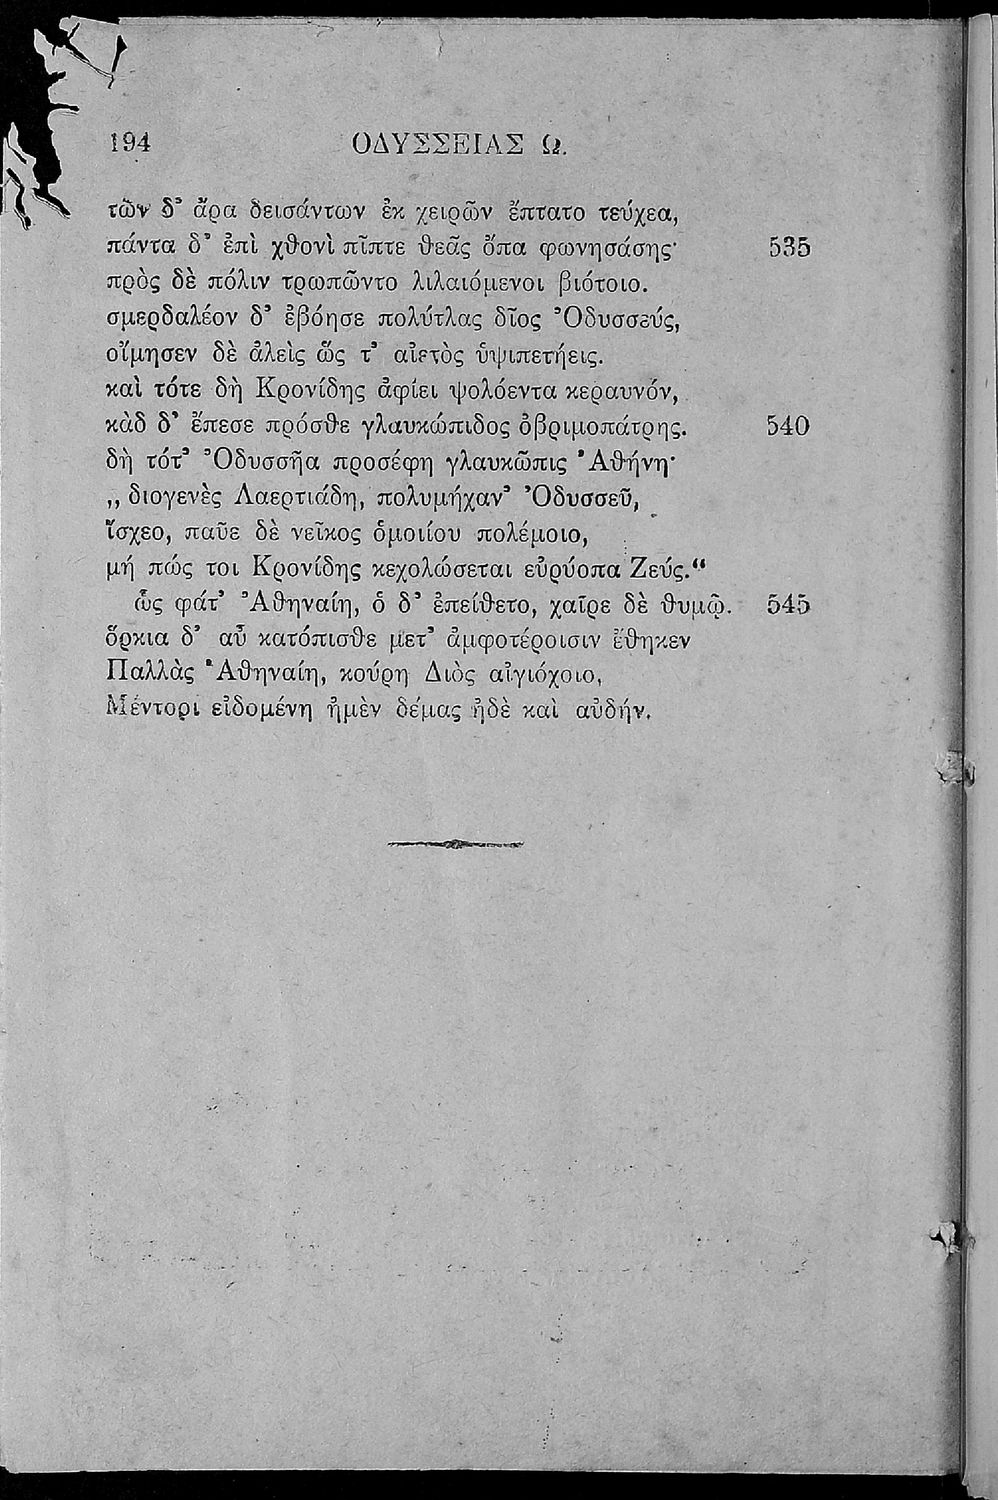 194 ΟΔΥΣΣΕΙΑΣ Ω.
τῶν δ’ ἄρα δεισάντων ἐκ χειρῶν ἔπτατο τεύχεα,
πάντα δ’ ἐπὶ χθονὶ πῖπτε θεᾶς ὄπα φωνησάσης· 535
πρὸς δὲ πόλιν τρωπῶντο λιλαιόμενοι βιότοιο.
σμερδαλέον δ’ ἐβόησε πολύτλας δῖος Ὀδυσσεύς,
οἴμησεν δὲ ἀλεὶς ὥς τ’ αἰετὸς ὑψιπετήεις.
καὶ τότε δὴ Κρονίδης ἀφίει ψολόεντα κεραυνόν,
κὰδ δ’ ἔπεσε πρόσθε γλαυκώπιδος ὀβριμοπάτρης. 540
δὴ τότ’ Ὀδυσσῆα προσέφη γλαυκῶπις Ἀθήνη·
„ διογενὲς Λαερτιάδη, πολυμήχαν’ Ὀδυσσεῦ,
ἴσχεο, παῦε δὲ νεῖκος ὁμοιίου πολέμοιο,
μή πώς τοι Κρονίδης κεχολώσεται εὐρύοπα Ζεύς.“
ὣς φάτ’ Ἀθηναίη, ὁ δ’ ἐπείθετο, χαῖρε δὲ θυμῷ. 545
ὅρκια δ’ αὖ κατόπισθε μετ’ ἀμφοτέροισιν ἔθηκεν
Παλλὰς Ἀθηναίη, κούρη Διὸς αἰγιόχοιο,
Μέντορι εἰδομένη ἠμὲν δέμας ἠδὲ καὶ αὐδήν.